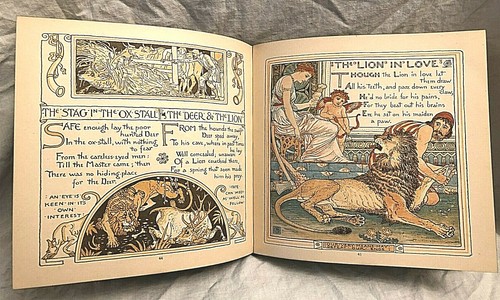 THE STAG IN THE OX STALL
SAFE enough lay the poor
hunted Deer
In the ox-stall, with nothing
to fear
From the careless-eyed men:
Till the Master came; then
There was no hiding place
for the Deer.
AN EYE IS
KEEN IN ITS
OWN
INTEREST
THE DEER & THE LION
FROM the hounds the swift
Deer sped away,
To his cave, where in past times
he lay
Well concealed; unaware
Of a Lion couched there,
For a spring that soon made
him his prey.
FATE
CAN MEET
AS WELL AS
FOLLOW
THE LION IN LOVE
THOUGH the Lion in love let
them draw
All his teeth, and pare down every
claw,
He'd no bride for his pains,
For they beat out his brains
Ere he set on his maiden
a paw.